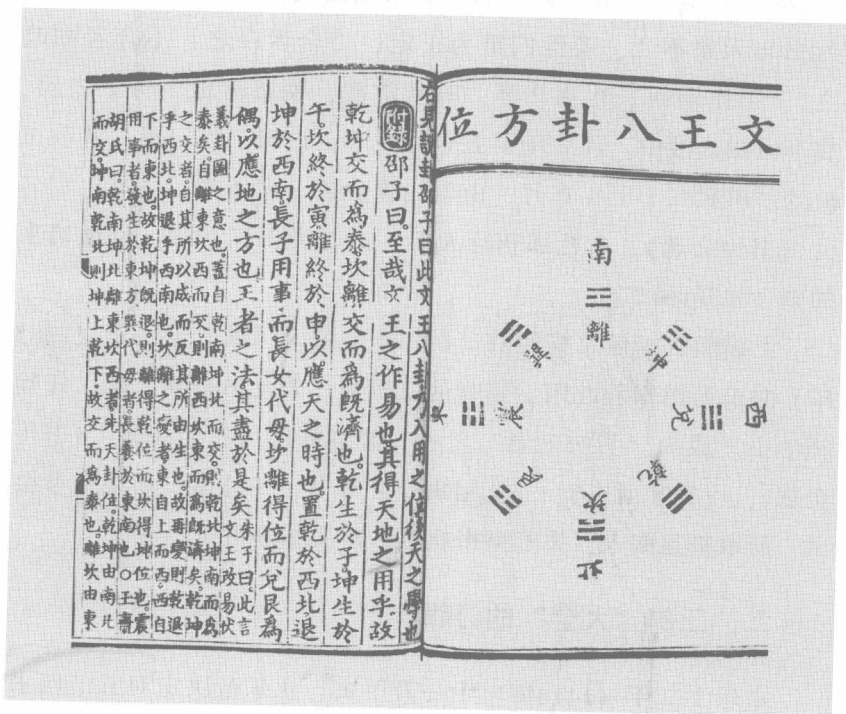 文王八卦方位
南
離
坤
西
兌
乾
坎
北
艮
震
東
巽
右見說卦邵子曰此文王八卦乃入用之位後天之學也
附錄 邵子曰至哉文王之作易也其得天地之用乎故
乾坤交而為泰坎離交而為既濟也乾生於子坤生於
午坎終於寅離終於申以應天之時也置乾於西北退
坤於西南長子用事而長女代母坎離得位而兌艮為
偶以應地之方也王者之法其盡於是矣朱子曰此言文王改易伏
羲卦圖之意也蓋自乾南坤北而交則乾北坤南而為
泰矣自離東坎西而交則離西坎東而為既濟矣乾坤
之交者自其所以成而反其所由生也故再變則乾退
乎西北坤退乎西南也坎離之變者東自上而西西自
下而東也故乾坤既退則離得乾位而坎得坤位也震
用事者發生於東方巽代母者長養於東南也○玉齋
胡氏曰乾南坤北離東坎西者先天卦位乾坤由南北
而交坤南乾北則坤上乾下故交而為泰也離坎由東